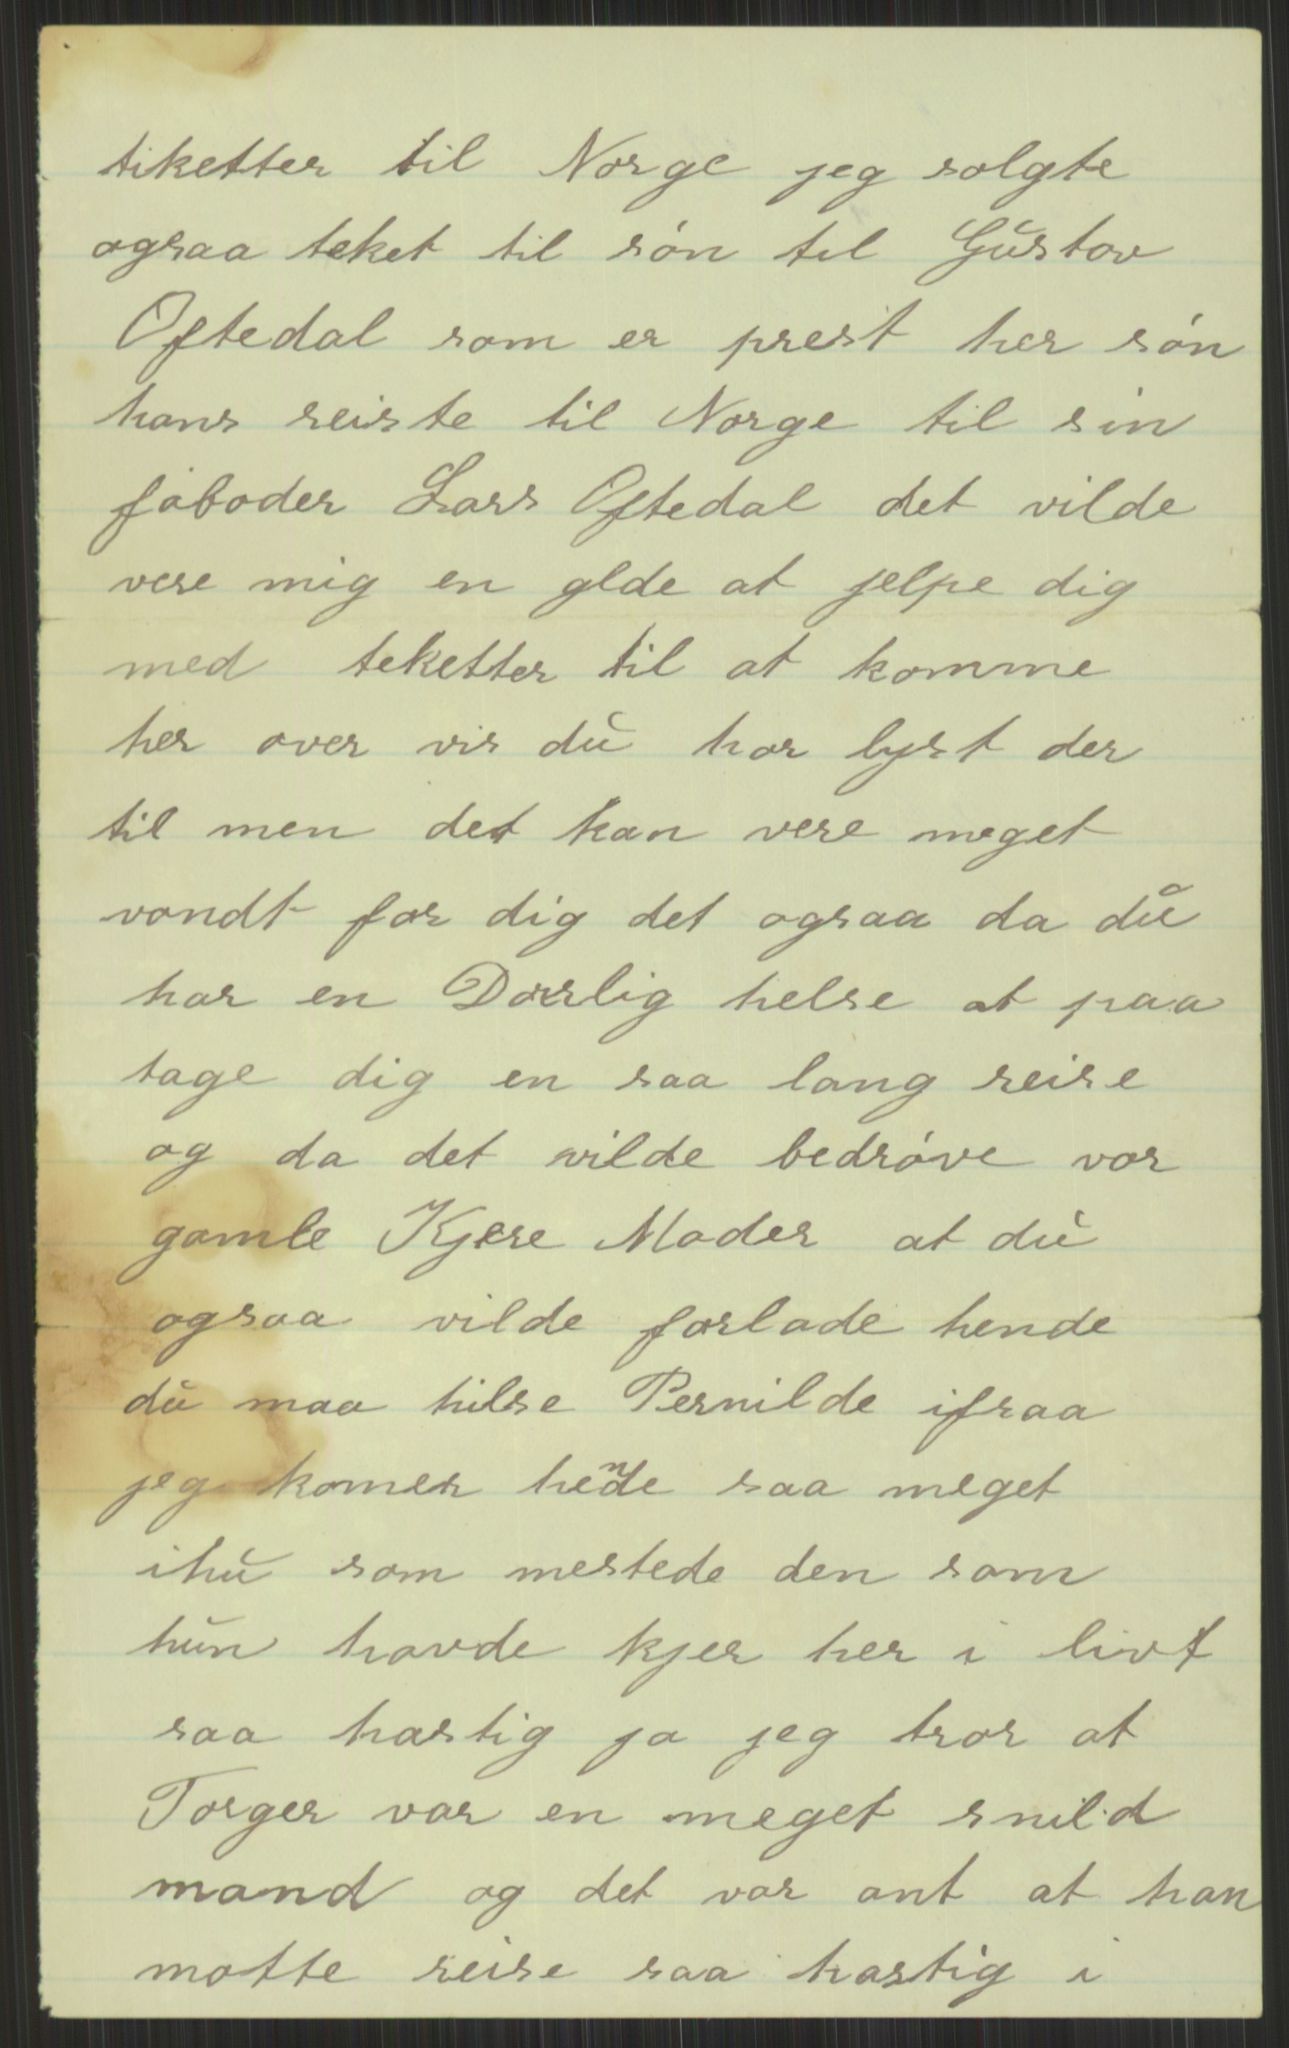 tiketter til Norge jeg solgte
ogsaa teket til søn til Gustav
Oftedal som er prest her søn
hans reiste til Norge til sin
faboder Lars Oftedal det vilde
vere mig en glde at jelpe dig
med teketter til at komme
her over vis du har lyst der
til men det kan vere meget
vondt for dig det ogsaa da du
har en Daarlig helse at paa
tage dig en saa lang reise
og da det vilde bedrøve vor
gamle Kjere Moder at du
ogsaa vilde forlade hende
du maa hilse Pernilde ifraa
jeg komer hende saa meget
ihu som mestede den som
hun havde kjer her i livt
saa hastig ja jeg tror at
Torger var en meget snild
mand og det var ont at han
motte reise saa hastig i